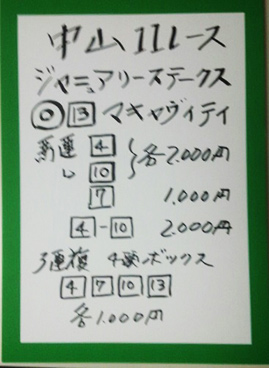 中山11レース
ジャニュアリーステークス
◎ 13 マキャヴィティ
馬連 4 } 各2.000円
〃 10
7 1.000円
4-10 2.000円
3連複 4頭ボックス
4 7 10 13
各1.000円